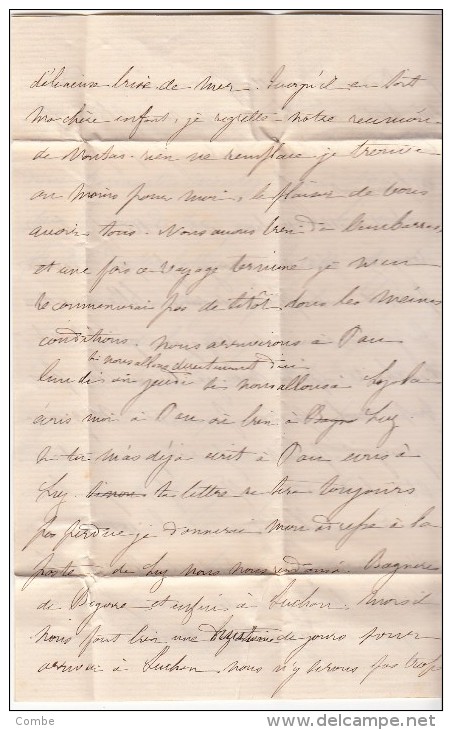 délicieuse brise de mer. Quoiqu'il en soit
ma chère enfant, je regrette notre réunion
de rien ne remplace je trouve
au moins pour moi, le plaisir de vous
avoir tous. Nous avons bien de l'embarras,
et une fois ce voyage terminé je n'en
recommencerai pas de sitôt dans les mêmes
conditions. nous arriverons à Pau
si nous allons directement d'ici
lundi ou jeudi si nous allons à Luz
écris moi à Pau ou bien à Luz
si tu m'as déjà écrit à Pau écris à
Luz ta lettre ne sera toujours
pas perdue je donnerai mon adresse à la
poste de Luz nous nous rendons à Bagnère
de Bigorre et enfin à Luchon. Mais il
nous faut bien une de jours pour
arriver à Luchon, nous n'y serons pas trop
Combe
www.delcampe.net